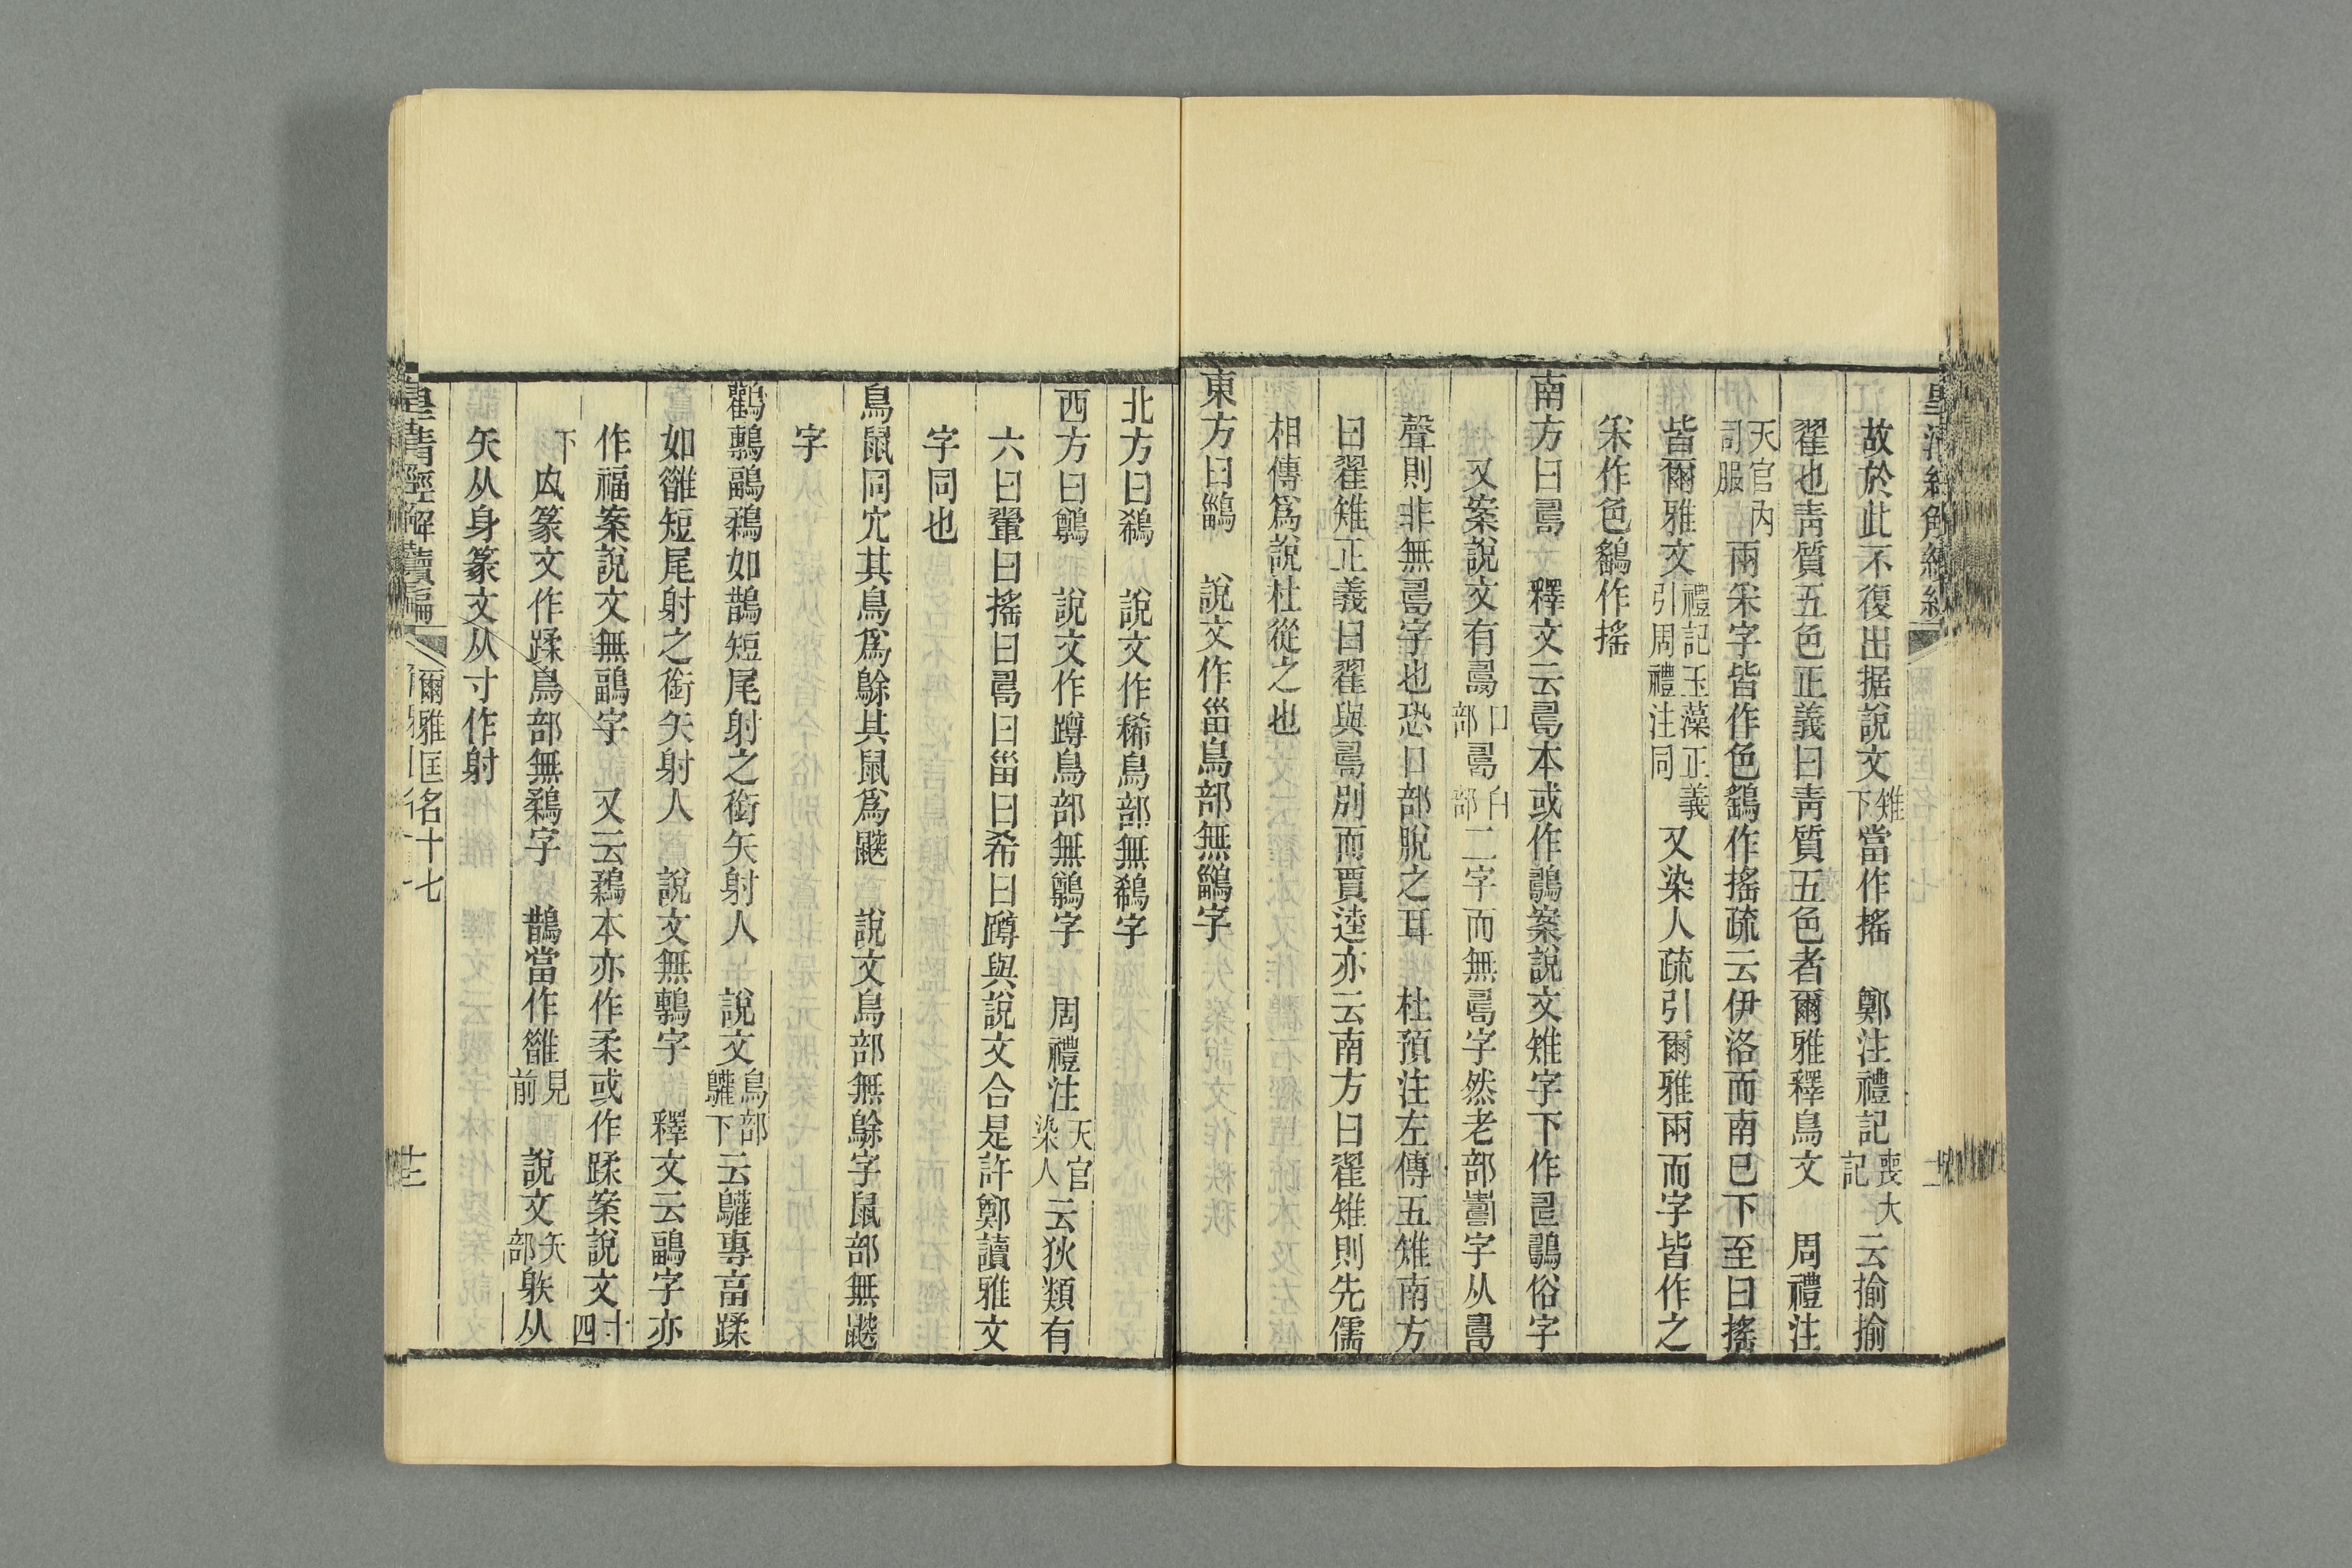 故於此不復出据說文雉下當作搖　鄭注禮記喪大記云揄揄
翟也靑質五色正義曰靑質五色者爾雅釋鳥文　周禮注
天官內司服兩采字皆作色鷂作搖疏云伊洛而南已下至曰搖
皆爾雅文禮記玉藻正義引周禮注同又染人疏引爾雅兩而字皆作之
采作色鷂作搖
南方曰𠷎　釋文云𠷎本或作䳓案說文雉字下作𠃬䳓俗字
又案說文有𠷎口部𠷎白部二字而無𠷎字然老部字从𠷎
聲則非無𠷎字也恐口部脫之耳　杜預注左傳五雉南方
曰翟雉正義曰翟與𠷎別而賈逵亦云南方曰翟雉則先儒
相傳爲說杜從之也
東方曰鶅　說文作甾鳥部無鶅字
北方曰鵗　說文作稀鳥部無鵗字
西方曰鷷　說文作蹲鳥部無鷷字　周禮注天官染人云狄類有
六曰翬曰搖曰𠷎曰甾曰希曰蹲與說文合是許鄭讀雅文
字同也
鳥鼠同穴其鳥爲鵌其鼠爲鼵　說文鳥部無鵌字鼠部無鼵
字
鸛鷒鶝鶔如鵲短尾射之銜矢射人　說文鳥部䳽下云䳽專畐蹂
如䧿短尾射之銜矢射人　說文無鷒字　釋文云鶝字亦
作福案說文無鶝字　又云鶔本亦作柔或作蹂案說文十四
下厹篆文作蹂鳥部無鶔字　鵲當作䧿見前　說文矢部䠶从
矢从身篆文从寸作射
皇清經解續編　爾雅匡名十七